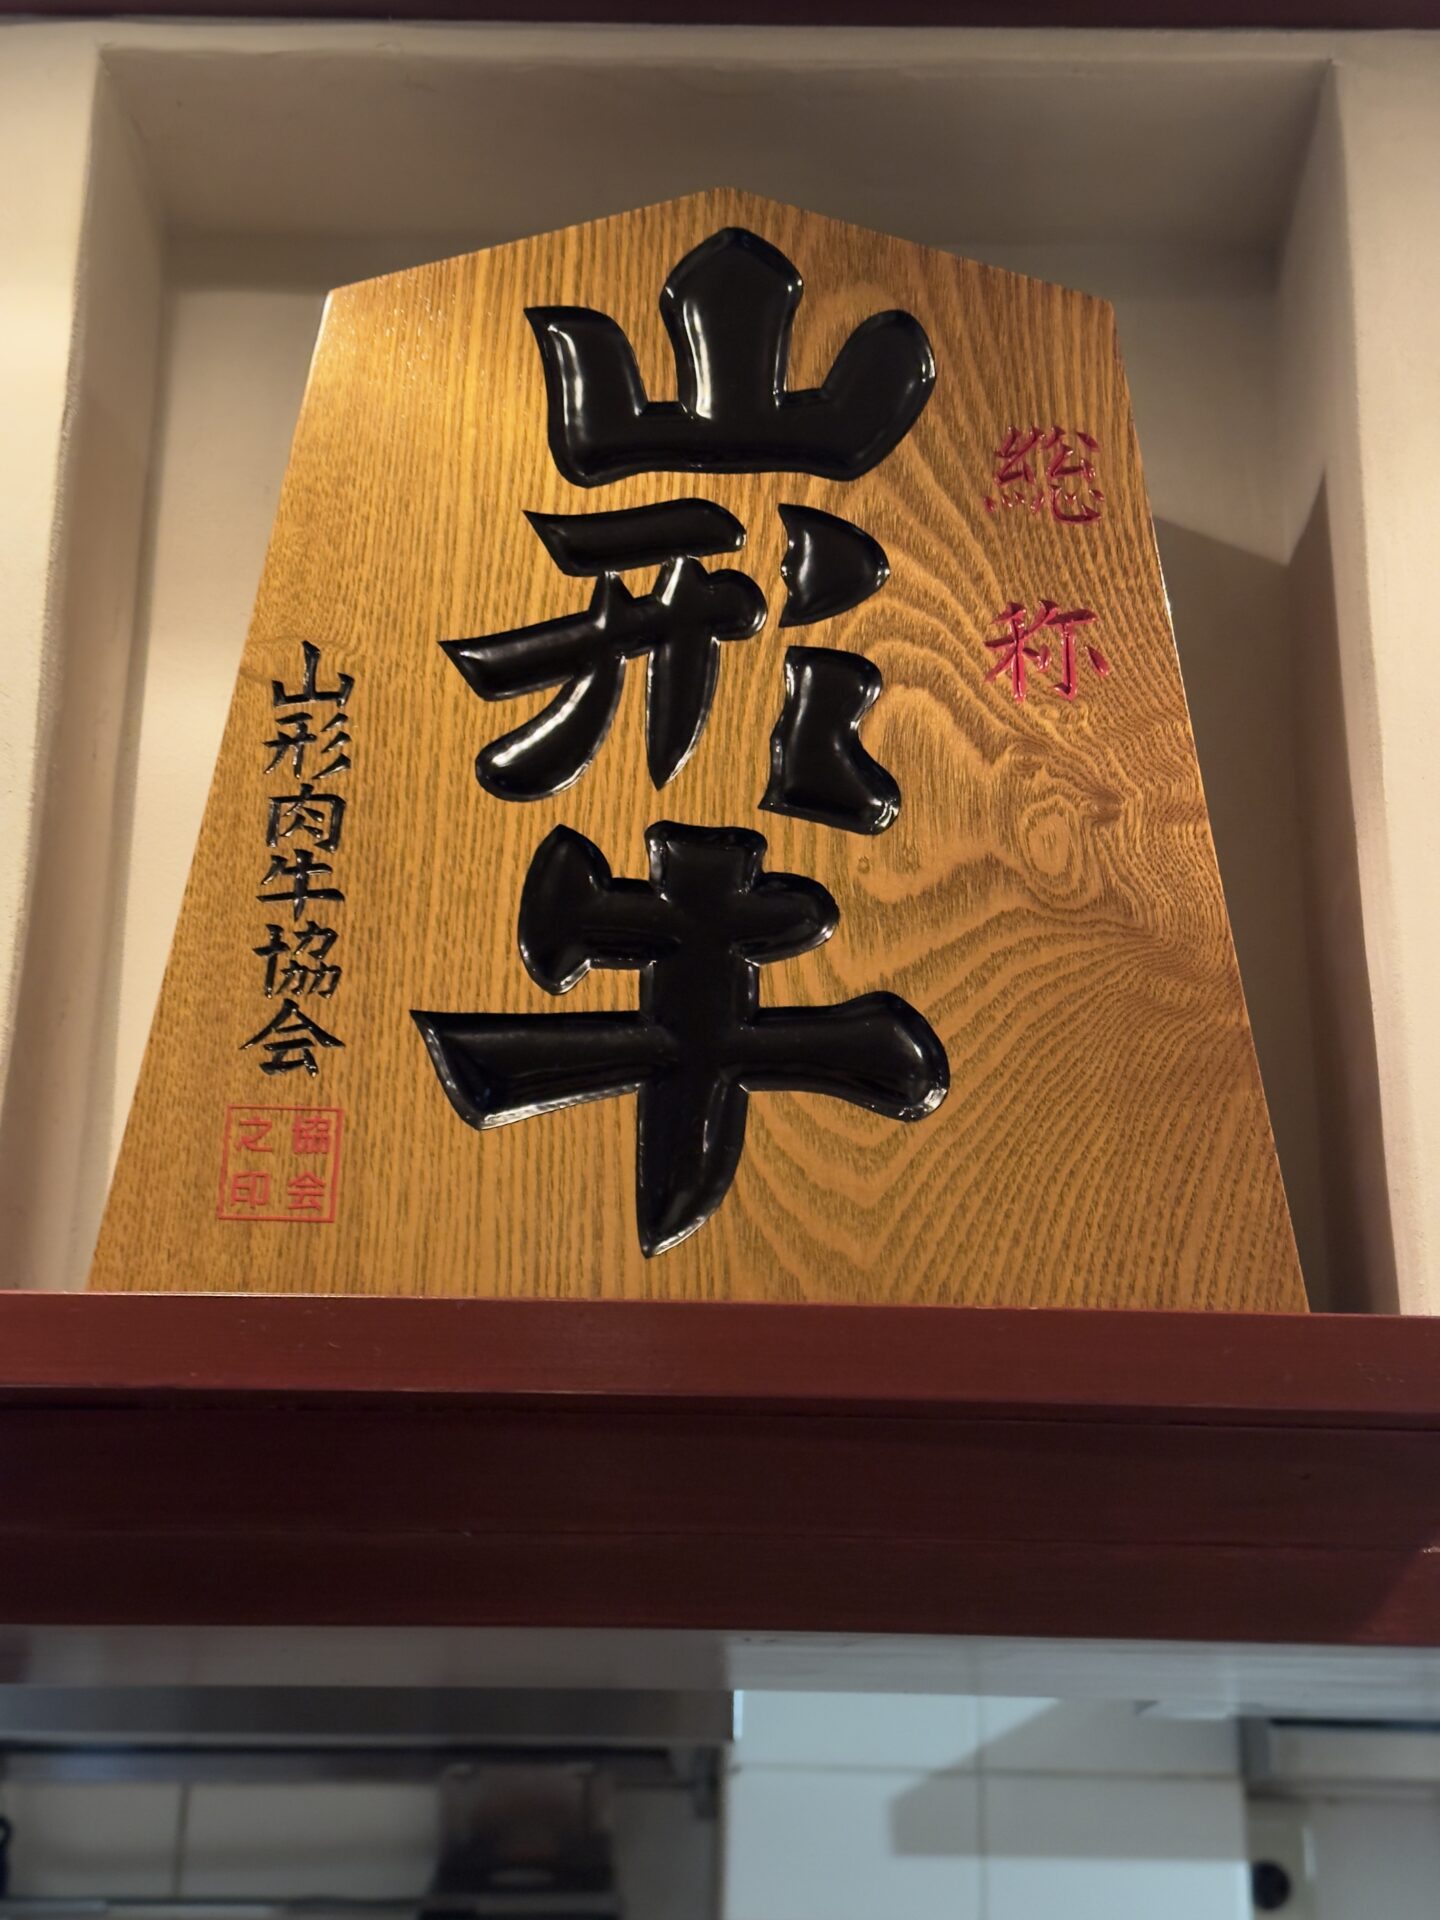 総称
山形牛
山形肉牛協会
協会之印